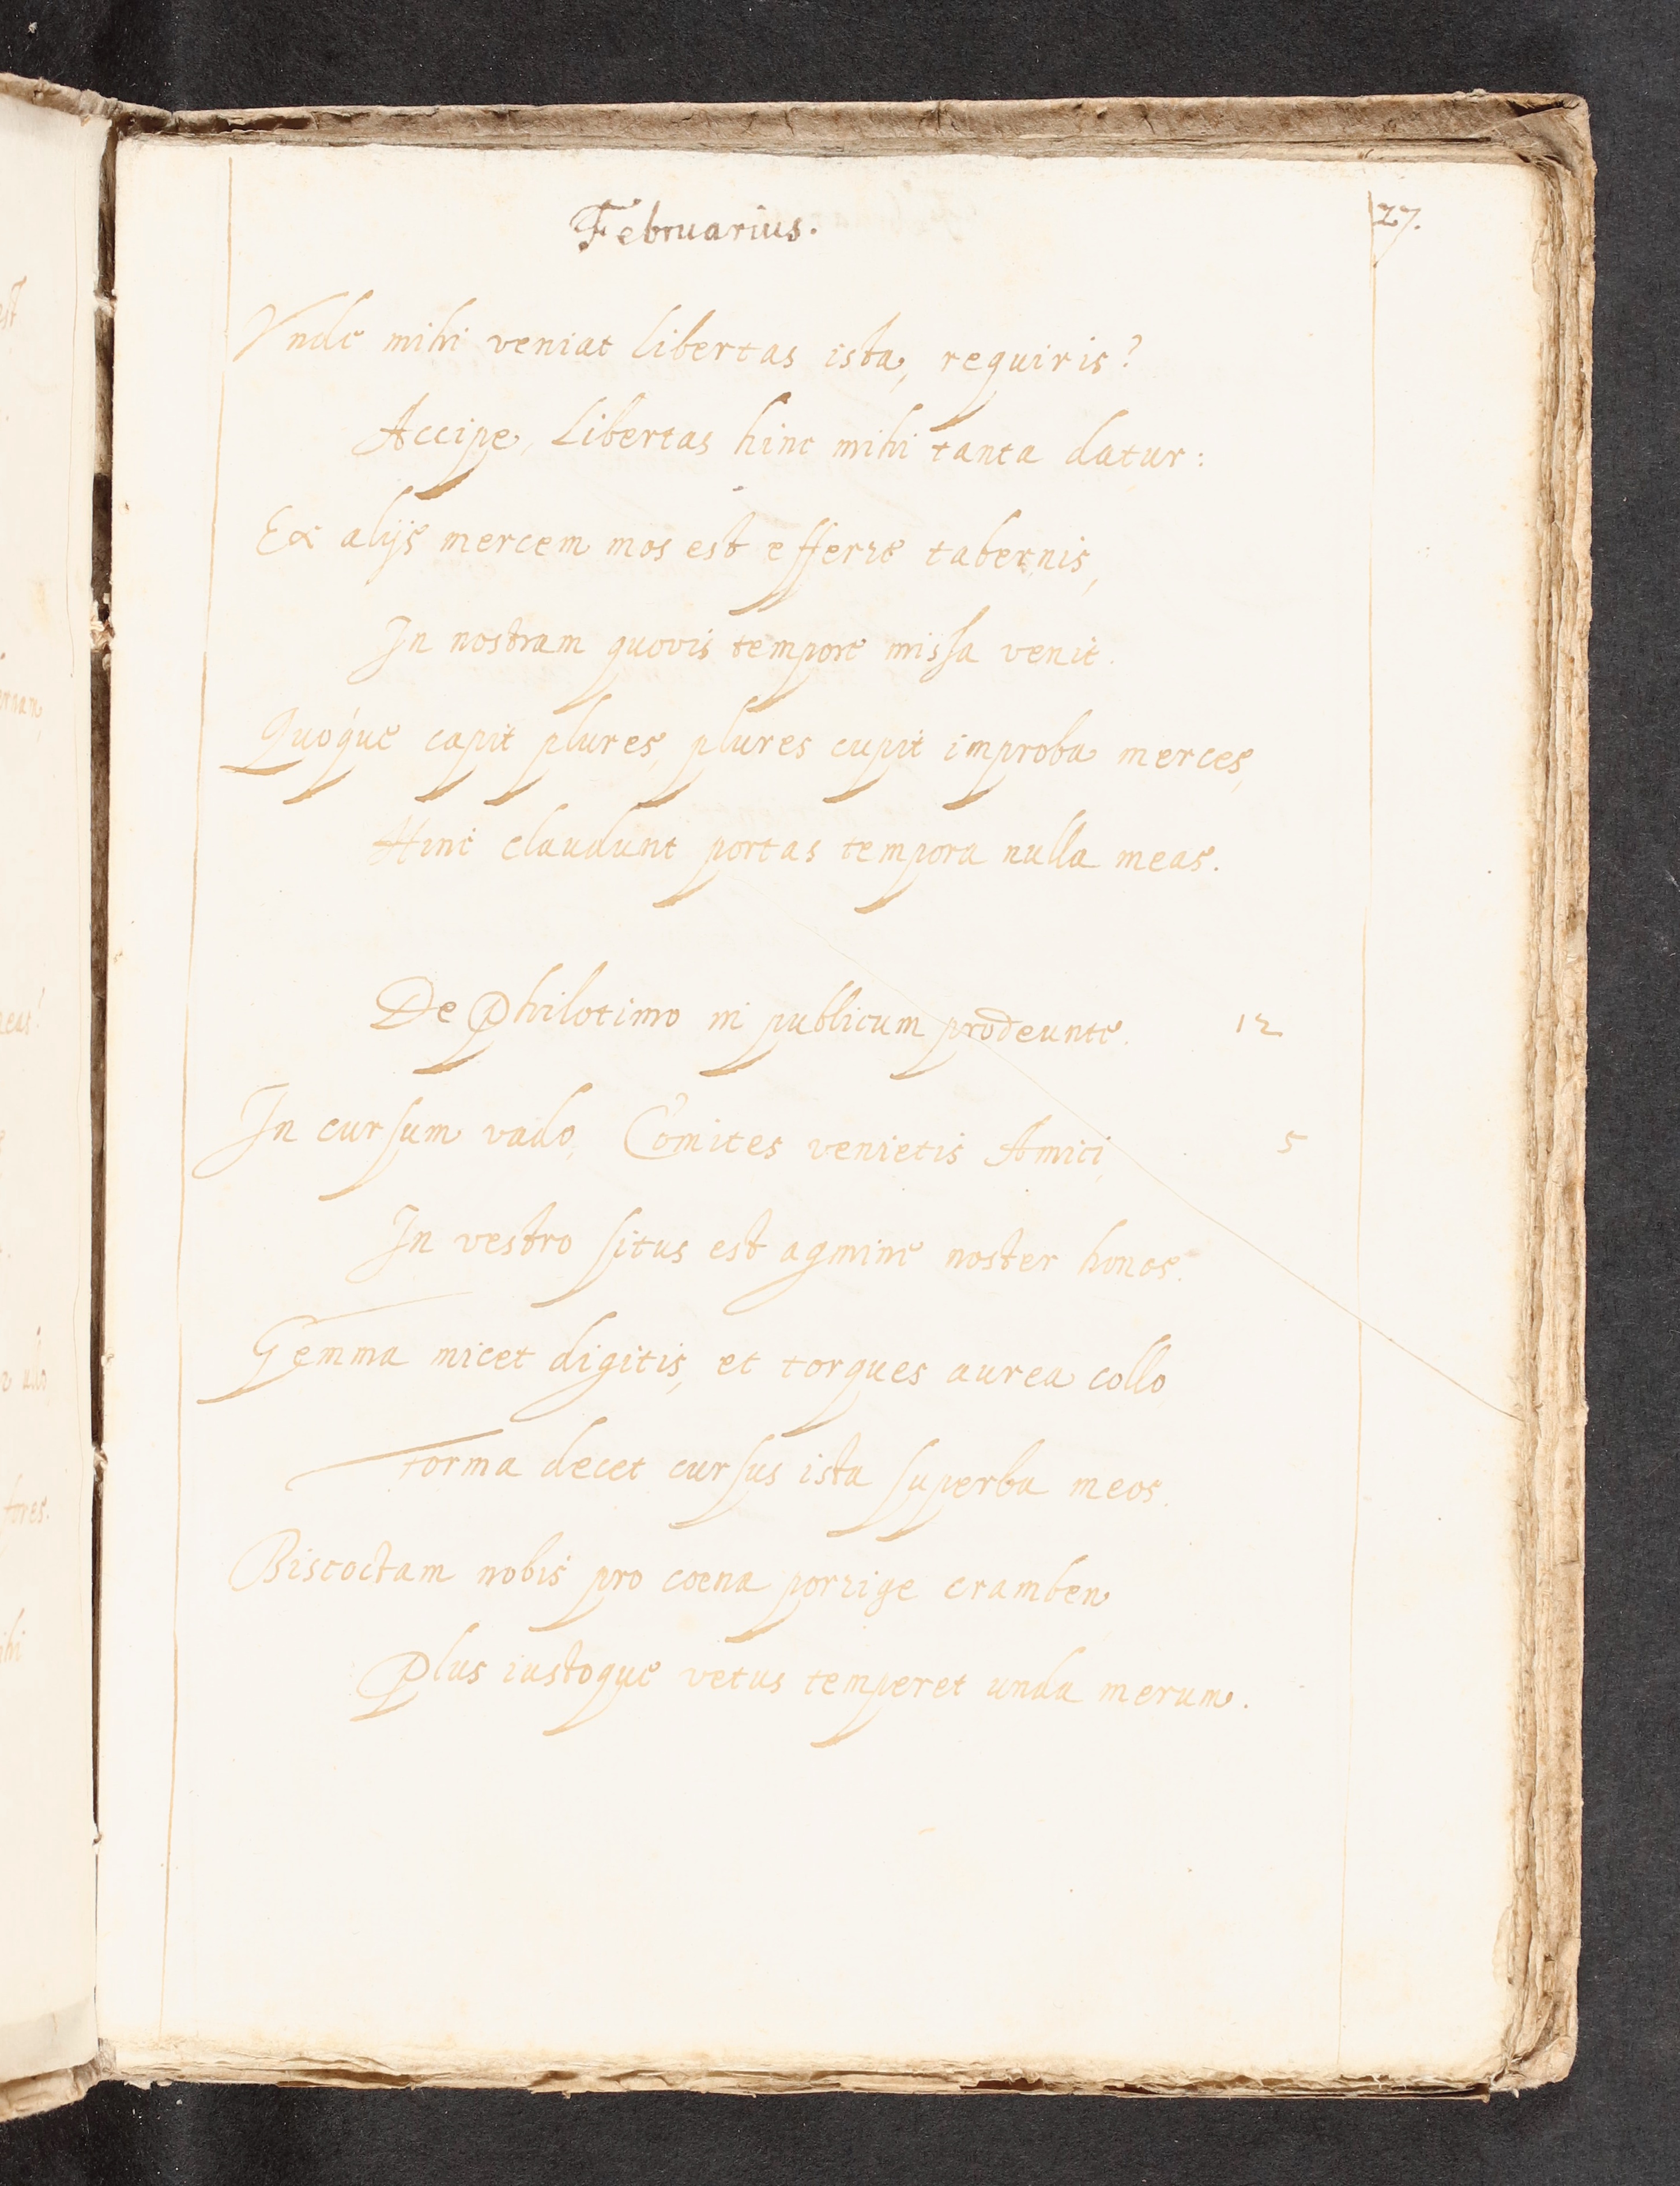 Februarius.
27.
Vnde mihi veniat libertas ista, requiris?
Accipe, libertas hinc mihi tanta datur:
Ex alijs mercem mos est efferre tabernis,
In nostram quovis tempore missa venit.
Quóque capit plures, plures cupit improba merces,
Hinc claudunt portas tempora nulla meas.
De Philotimo in publicum prodeunte. 12
In cursum vado, Comites venietis Amici, 5
In vestro situs est agmine noster honos.
Gemma micet digitis, et torques aurea collo,
Forma decet cursus ista superba meos.
Biscoctam nobis pro coena porrige cramben
Plus iustoque vetus temperet unda merum.